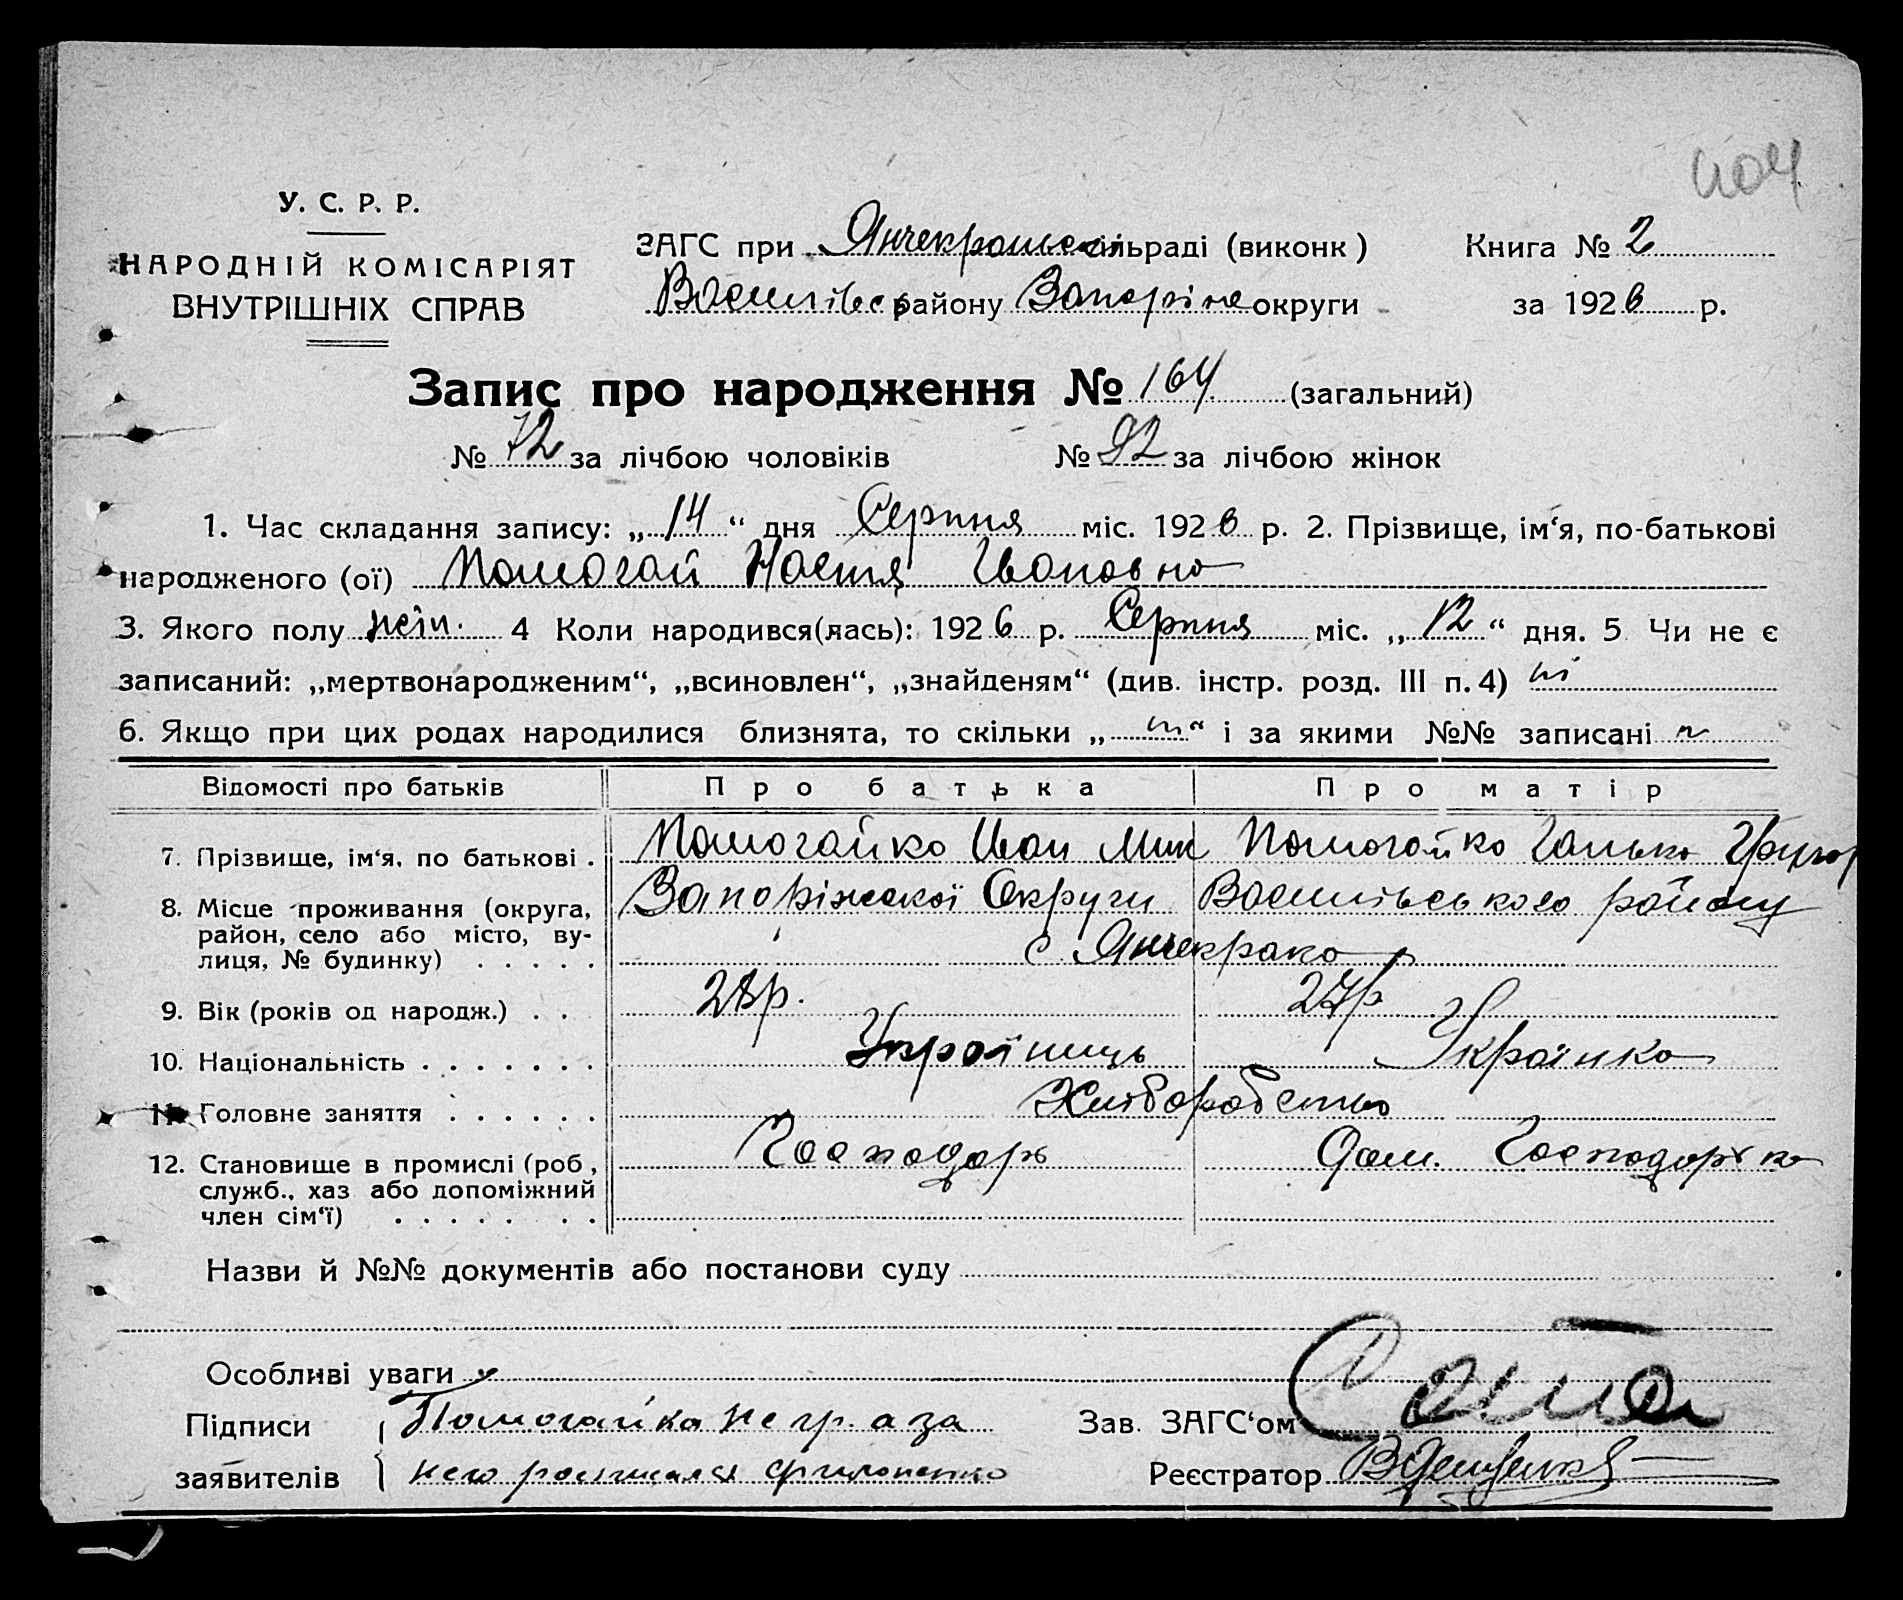 404
У. С. Р. Р.
НАРОДНІЙ КОМІСАРІЯТ
ВНУТРІШНІХ СПРАВ
ЗАГС при Янчекракськ сільраді (виконк)
Василівськ району Запоріжс округи
Книга № 2
за 1926 р.
Запис про народження № 164 (загальний)
№ 72 за лічбою чоловіків № 92 за лічбою жінок
1. Час складання запису: „14“ дня Серпня міс. 1926 р. 2. Прізвище, ім‘я, по-батькові
народженого (ої) Помогай Настя Івановна
3. Якого полу жін. 4 Коли народився(лась): 1926 р. Серпня міс. „12“ дня. 5 Чи не є
записаний: „мертвонародженим“, „всиновлен“, „знайденям“ (див. інстр. розд. III п. 4) ні
6. Якщо при цих родах народилися близнята, то скільки „ “ і за якими №№ записані
Відомості про батьків Про батька Про матір
7. Прізвище, ім‘я, по батькові . Помогайко Иван Мик Помогайко Ганька Григор
8. Місце проживання (округа, район, село або місто, вулиця, № будинку) . . . . . Запоріжської Округи Василівського району
с. Янчекрак
9. Вік (років од народж.) . . 28р. 27р
10. Національність . . . . . . . Українець Українка
11. Головне заняття . . . . . . Хліборобство
12. Становище в промислі (роб, служб., хаз або допоміжний член сім‘ї) . . . . . . . Господарь Дом. Господарка
Назви й №№ документів або постанови суду
Особливі уваги
Підписи Помогайка не гр. а за
заявителів него росписался Филоненко
Зав. ЗАГС‘ом
Реєстратор